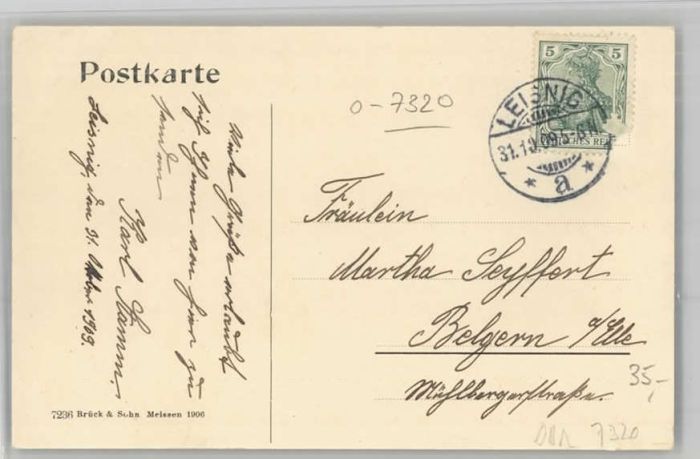 Postkarte
Viele Grüße erlaubt
sich Ihnen von hier zu
senden
Karl Stamm.
Leisnig, den 31. Oktober 1909.
o-7320
5 5
LEISNIG
31.10.09.5-6N
* a *
Fräulein
Martha Seyffert
Belgern a/Elbe
Mühlbergerstraße.
35,-
7236 Brück & Sohn Meissen 1906
7320